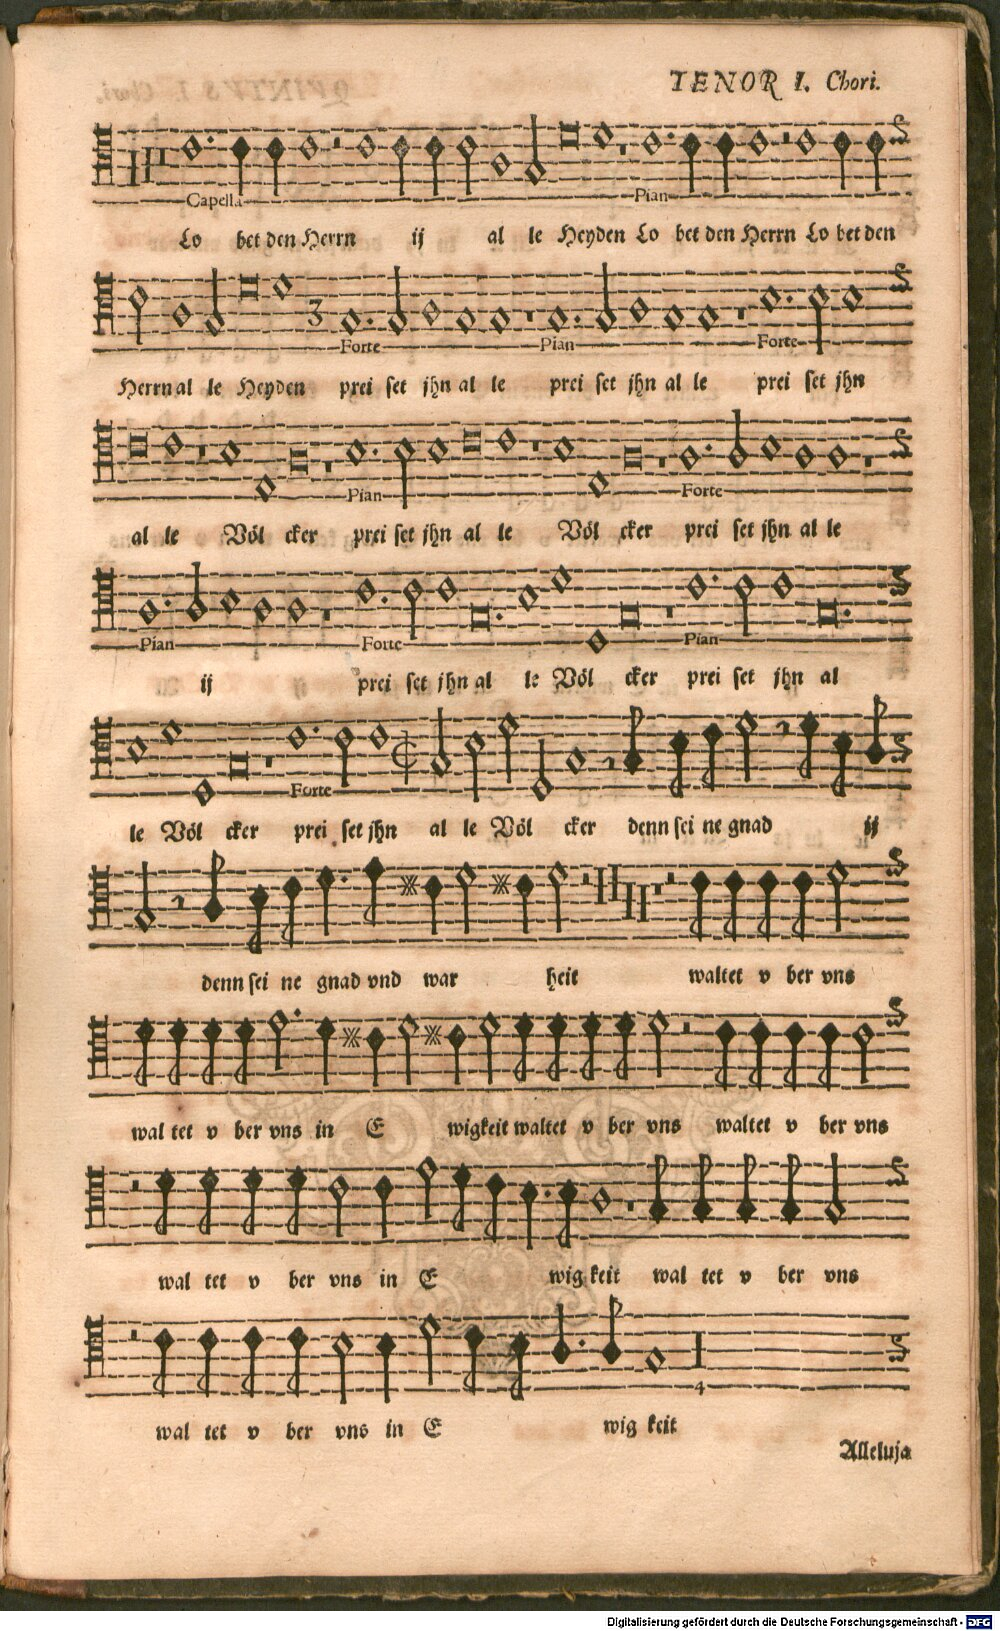 TENOR I. Chori.
Capella Pian
Lo bet den Herrn ij al le Heyden Lo bet den Herrn Lo bet den
3 Forte Pian Forte
Herrn al le Heyden prei set jhn al le prei set jhn al le prei set jhn
Pian Forte
al le Völ cker prei set jhn al le Völ cker prei set jhn al le
Pian Forte Pian
ij prei set jhn al le Völ cker prei set jhn al
Forte
le Völ cker prei set jhn al le Völ cker denn sei ne gnad ij
denn sei ne gnad vnd war heit waltet v ber vns
wal tet v ber vns in E wigkeit waltet v ber vns waltet v ber vns
wal tet v ber vns in E wig keit wal tet v ber vns
4
wal tet v ber vns in E wig keit
Alleluja
Digitalisierung gefördert durch die Deutsche Forschungsgemeinschaft - DFG